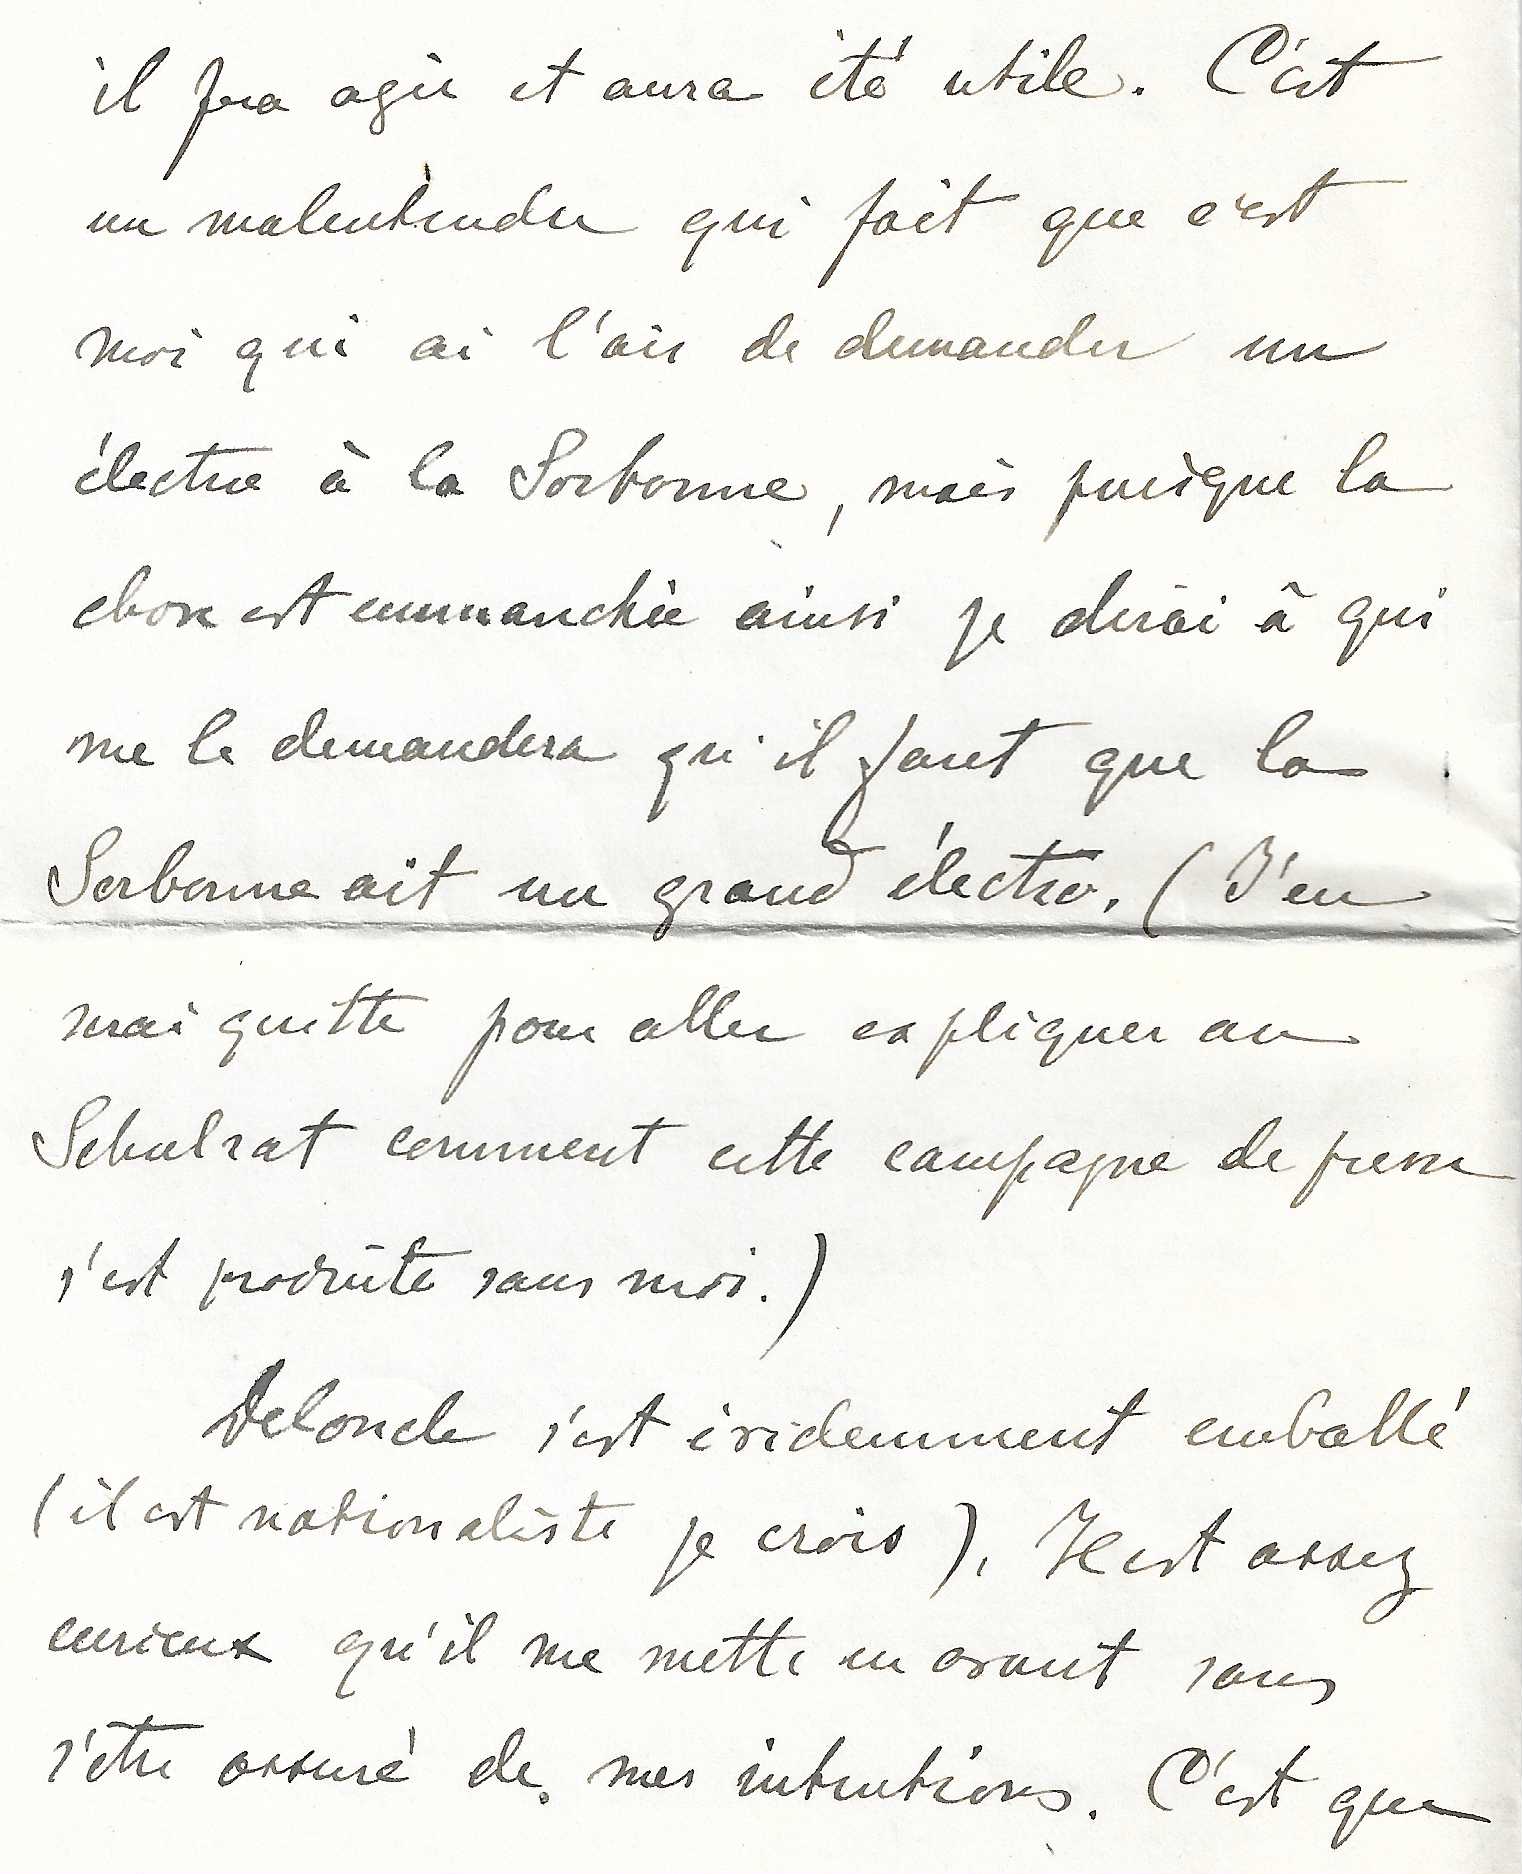 il fera agir et aura été utile. C'est
un malentendu qui fait que c'est
moi qui ai l'air de demander un
électro à la Sorbonne, mais puisque la
chose est emmanchée ainsi je dirai à qui
me le demandera qu'il faut que la
Sorbonne ait un grand électro. (J'en
serai quitte pour aller expliquer au
Schulrat comment cette campagne de presse
s'est produite sans moi.)
Deloncle s'est évidemment emballé
(il est nationaliste je crois). Il est assez
curieux qu'il me mette en avant sans
s'être assuré de mes intentions. C'est que